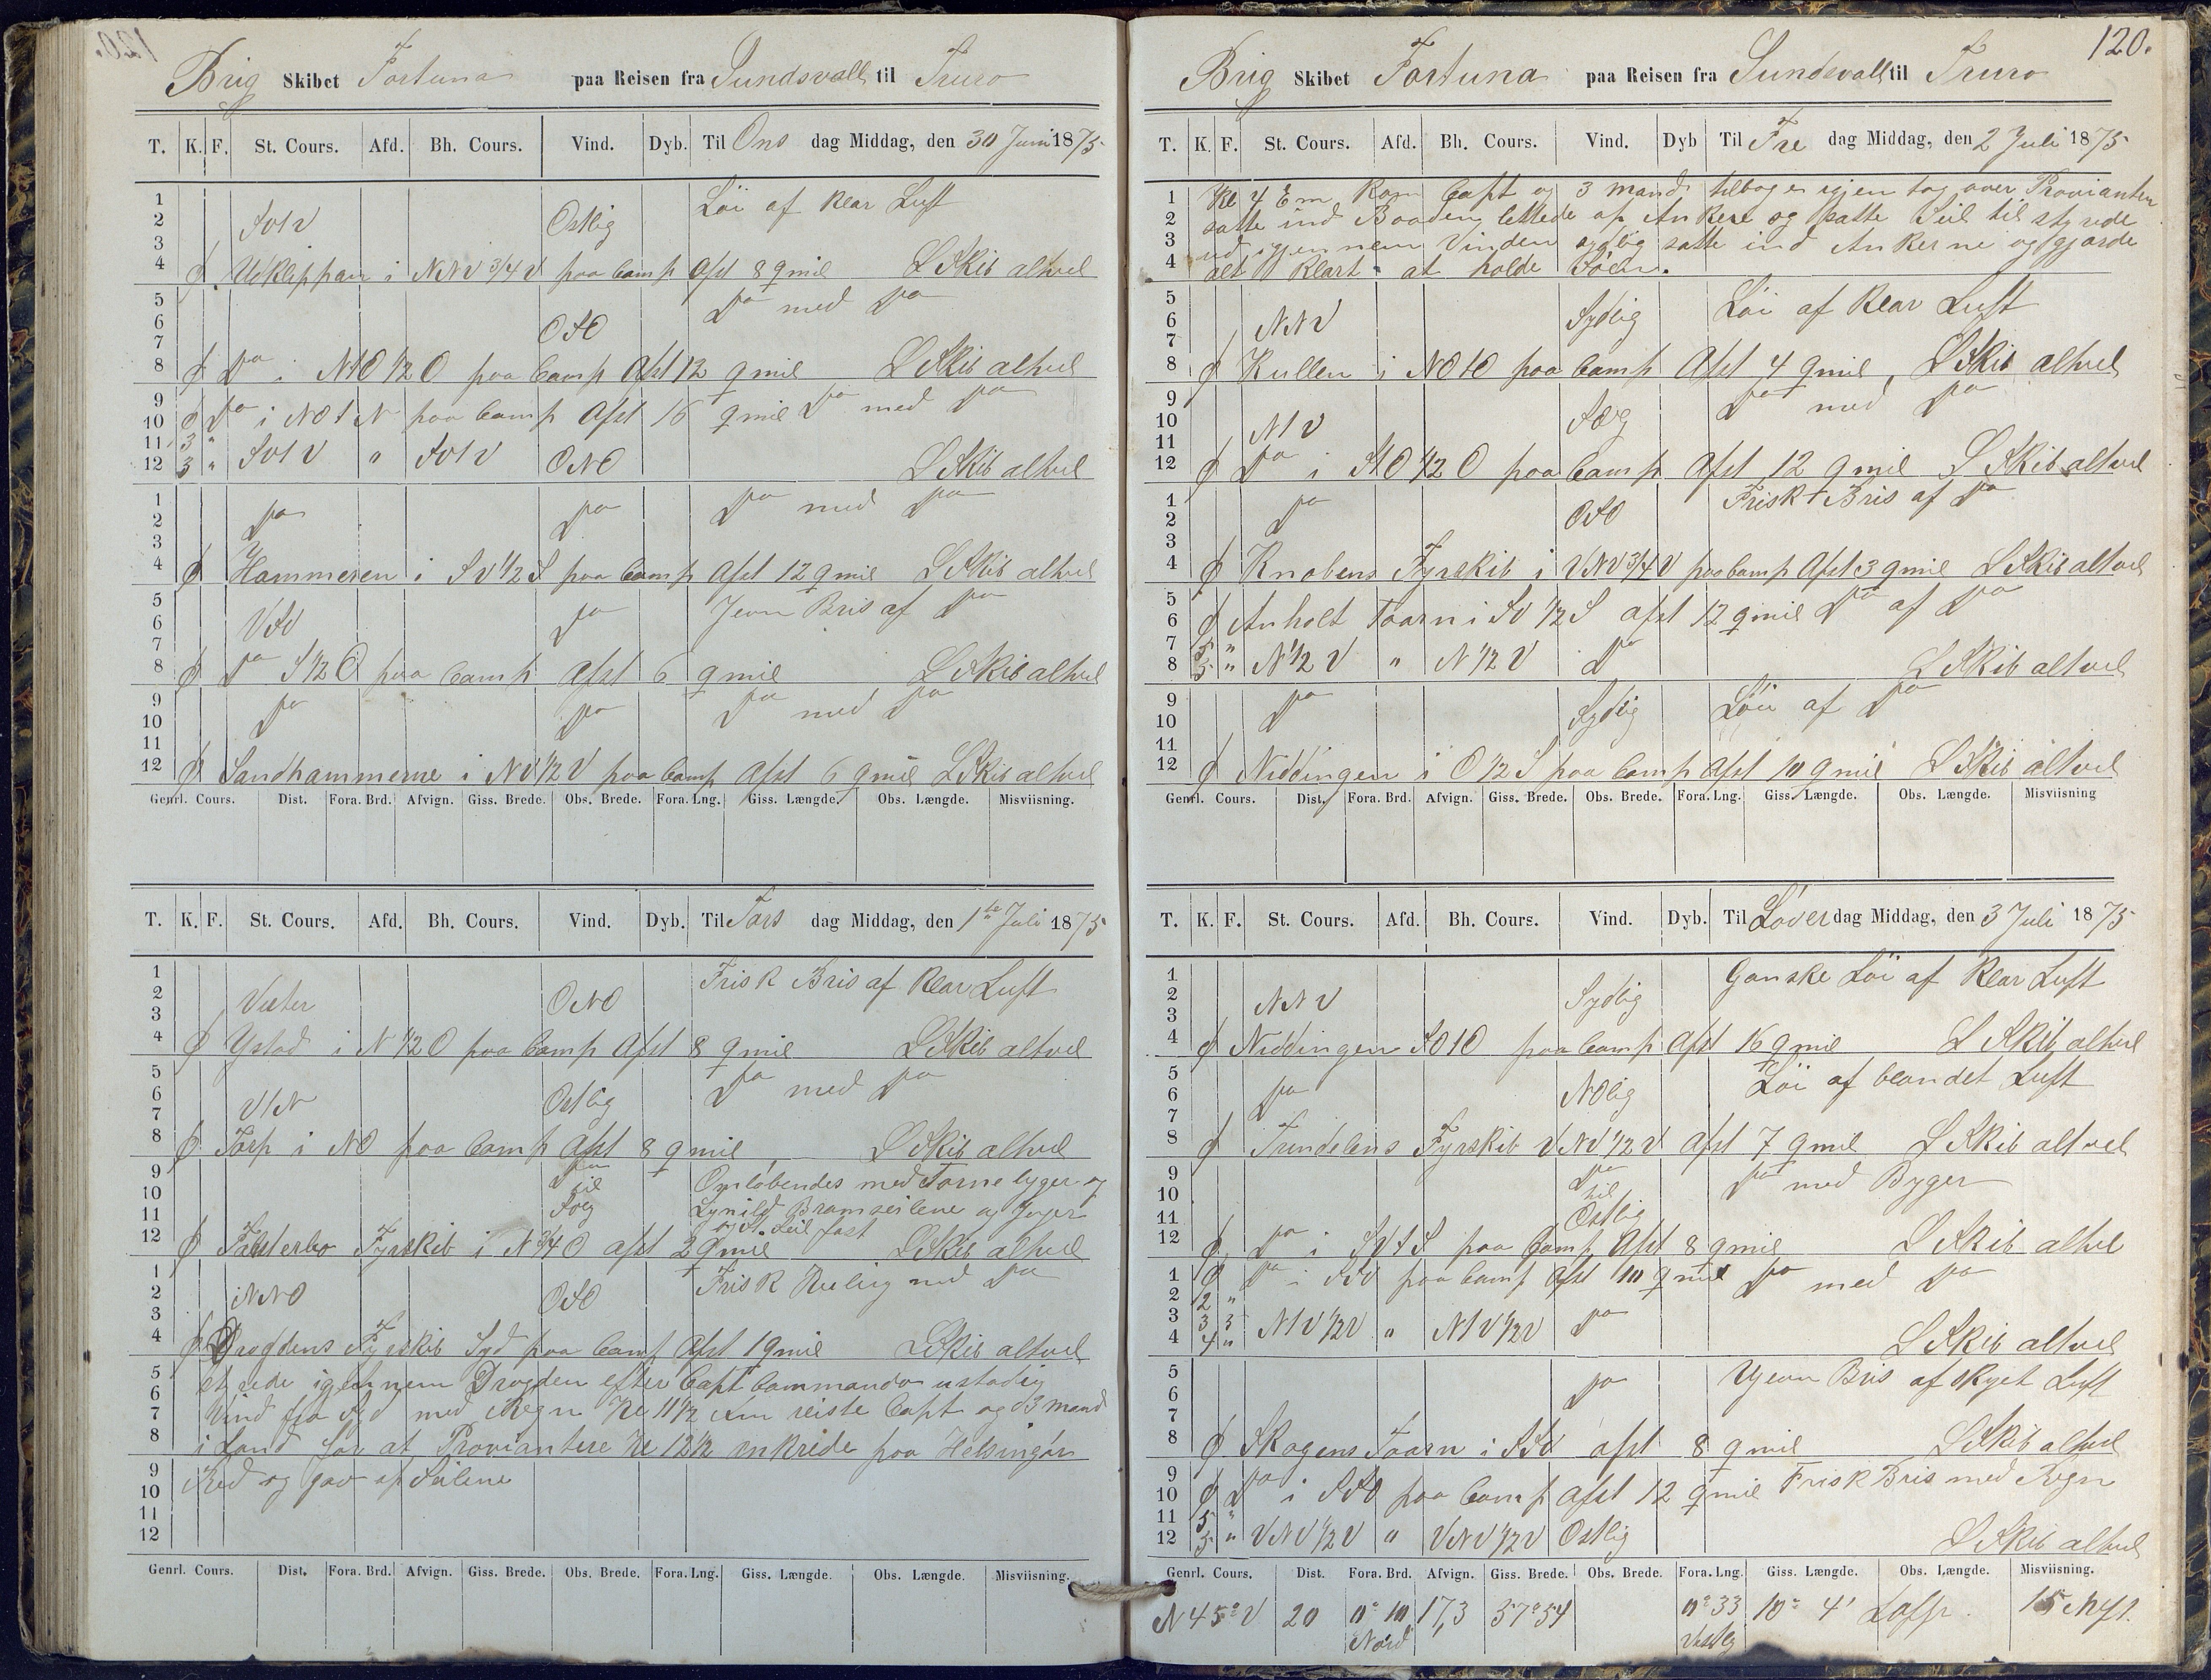 Brig Skibet Fortuna paa Reisen fra Sundsvall til Truro
T. K. F. St. Cours. Afd. Bh. Cours. Vind. Dyb. Til Ons dag Middag, den 30 Juni 1875
1 Löi af klar Luft
2 SV Ostlig
3
4 ₵ Udklippan i NNV 3/4 V paa Comp Afst 8 qmil L Skib altvel
5 Do med Do
6 OSO
7
8 ₵ Do i N1O 1/2 O paa Comp Afst 12 qmil L Skib altvel
9
10 ₵ Do i NO1N paa Comp Afst 16 qmil Do med Do
11 3 "
12 3 " SV1V " SV1V ONO L Skib altvel
1 Do Do Do med Do
2
3
4 ₵ Hammeren i SV 1/2 S paa Comp Afst 12 qmil L Skib altvel
5 Do Jevn Bris af Do
6 VSV
7
8 ₵ Do S 1/2 O paa Comp Afst 6 qmil L Skib altvel
9 Do Do Do med Do
10
11
12 ₵ Sandhammerne i NV 1/2 V paa Comp Afst 6 qmil L Skib altvel
Genrl. Cours. Dist. Fora. Brd. Afvign. Giss. Brede. Obs. Brede. Fora. Lng. Giss. Længde. Obs. Længde. Misviisning.
T. K. F. St. Cours. Afd. Bh. Cours. Vind. Dyb. Til Tors dag Middag, den 1ste Juli 1875
1 Frisk Bris af klar Luft
2 Vester ONO
3
4 ₵ Ystad i N 1/2 O paa Comp Afst 8 qmil L Skib altvel
5 Do med Do
6 V1N Ostlig
7
8 ₵ Torp i NO paa Comp Afst 8 qmil L Skib altvel
9 Do Omløbendes med Torne byger og
10 til
11 Solig Lynild Bramseilene og Jager
og St. Seil fast
12 ₵ Falsterbo Fyrskib i N 3/4 O afst 2 qmil L Skib altvel
1 Frisk Kuling med Do
2 NNO OSO
3
4 ₵ Drogdens Fyrskib Syd paa Comp Afst 1 qmil L Skib altvel
5 styrede igjennem Drogden efter Capt Commando ustadig
6
7 Vind fra Syd med Regn Kl 11 1/2 Fm reiste Capt og 3 mand
8 i Land for at Proviantere Kl 12 1/2 ankrede paa Helsingør
9 Red og gav op Seilene
10
11
12
Genrl. Cours. Dist. Fora. Brd. Afvign. Giss. Brede. Obs. Brede. Fora. Lng. Giss. Længde. Obs. Længde. Misviisning.
120.
Brig Skibet Fortuna paa Reisen fra Sundsvall til Truro
T. K. F. St. Cours. Afd. Bh. Cours. Vind. Dyb Til Fre dag Middag, den 2 Juli 1875
1 Kl 4 Em kom Capt og 3 mand tilbage igjen tog over Provianten
2 satte ind Baaden lettede op Ankere og satte Seil til styrede
3 ud igjennem Vinden sydlig satte ind Ankerne og gjorde
4 alt klart at holde Søen.
5 Löi af klar Luft
6 NNV Sydlig
7
8 ₵ Kullen i NO1O paa Comp Afst 4 qmil L Skib altvel
9 Do med Do
10 N1V
11
12 ₵ Do i S1O 1/2 O paa Comp Afst 12 qmil L Skib altvel
1 Do Frisk Bris af Do
2 OSO
3
4 ₵ Knobens Fyrskib i VNV 3/4 V paa Comp Afst 3 qmil L Skib altvel
5
6 ₵ Anholt Taarn i SV 1/2 S afst 12 qmil Do af Do
7 5 "
8 5 " N 1/2 V " N 1/2 V Do L Skib altvel
9 Do Löi af Do
10 Sydlig
11
12 ₵ Niddingen i O 1/2 S paa Comp Afst 10 qmil L Skib altvel
Genrl. Cours. Dist. Fora. Brd. Afvign. Giss. Brede. Obs. Brede. Fora. Lng. Giss. Længde. Obs. Længde. Misviisning
T. K. F. St. Cours. Afd. Bh. Cours. Vind. Dyb. Til Löverdag Middag, den 3 Juli 1875
1 Ganske Löi af klar Luft
2 NNV Sydlig
3
4 ₵ Niddingen SO1O paa Comp Afst 16 qmil L Skib altvel
5 Löi af blandet Luft
6 Do NOlig
7
8 ₵ Trindelens Fyrskib VNV 1/2 V Afst 7 qmil L Skib altvel
9 Do Do med Byger
10 til
11 Ostlig
12 ₵ Do i SV1S paa Comp Afst 8 qmil L Skib altvel
1 ₵ Do i SSV paa Comp Afst 10 qmil Do med Do
2 2 "
3 3 3 N1V 1/2 V " N1V 1/2 V Do
4 4 " L Skib altvel
5 Do Ujevn Bris af skyet Luft
6
7
8 ₵ Skagens Taarn i SSV afst 8 qmil L Skib altvel
9
10 ₵ Do i SSO paa Comp afst 12 qmil Frisk Bris med Regn
11 5 "
12 5 " VNV 1/2 V " VNV 1/2 V Ostlig L Skib altvel
Genrl. Cours. Dist. Fora. Brd. Afvign. Giss. Brede. Obs. Brede. Fora. Lng. Giss. Længde. Obs. Længde. Misviisning.
N 45° V 20 0° 10 Nord 17,3 57° 54 0° 33 Vestlig 10° 4'